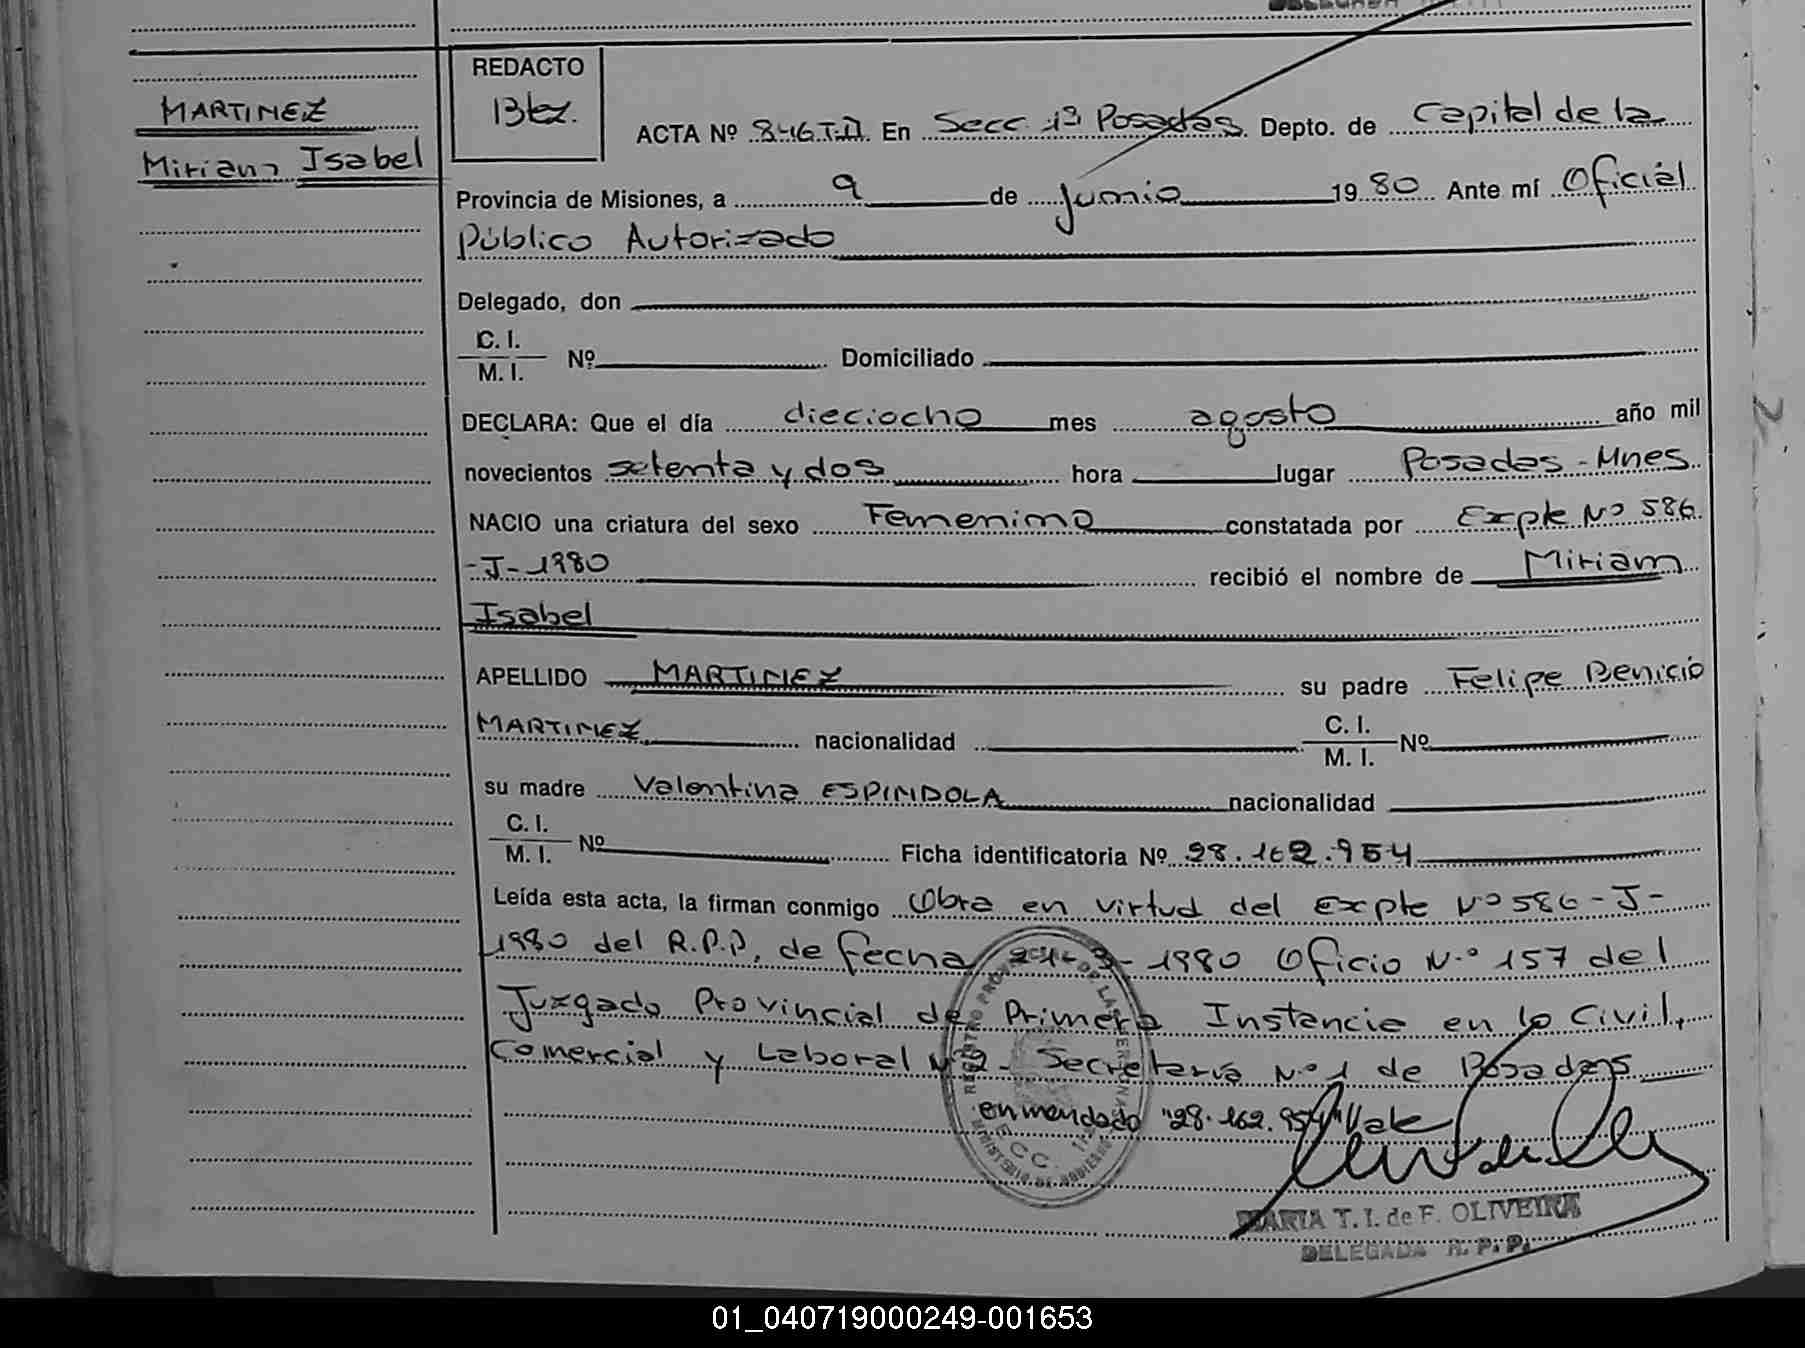 MARTINEZ
Miriam Isabel
REDACTO
ACTA Nº 846 T.A. En Secc 1ª Posadas Depto. de Capital de la
Provincia de Misiones, a 9 de junio 1980 Ante mí Oficial
Público Autorizado
Delegado, don
C. I.
M. I. Nº Domiciliado
DECLARA: Que el día dieciocho mes agosto año mil
novecientos setenta y dos hora lugar Posadas - Mnes
NACIO una criatura del sexo Femenino constatada por Expte Nº 586
-J-1980 recibió el nombre de Miriam
Isabel
APELLIDO MARTINEZ su padre Felipe Benicio
MARTINEZ nacionalidad C. I. M. I. Nº
su madre Valentina ESPINDOLA nacionalidad
C. I.
M. I. Nº Ficha identificatoria Nº 28.162.954
Leída esta acta, la firman conmigo Obra en virtud del Expte Nº 586-J-
1980 del R.P.P. de fecha 1980 Oficio Nº 157 del
Juzgado Provincial de Primera Instancia en lo Civil,
Comercial y Laboral Nº 2 - Secretaría Nº 1 de Posadas
enmendado "28.162.954" Vale
MARIA T. I. de F. OLIVEIRA
DELEGADA R. P. P.
01_040719000249-001653